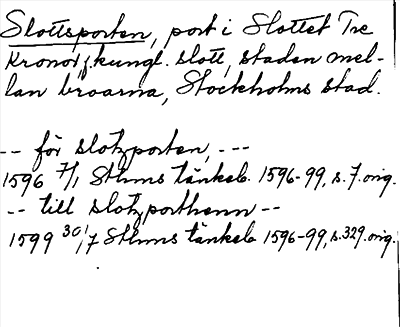 Slottsporten, port i Slottet Tre
Kronor, kungl. slott, staden mel-
lan broarna, Stockholms stad.
-- för slotzporten, ---
1596 7/1 Sthms tänkeb. 1596-99, s. 7. orig.
-- till slotzporthenn --
1599 30/7 Sthms tänkeb 1596-99, s. 329. orig.